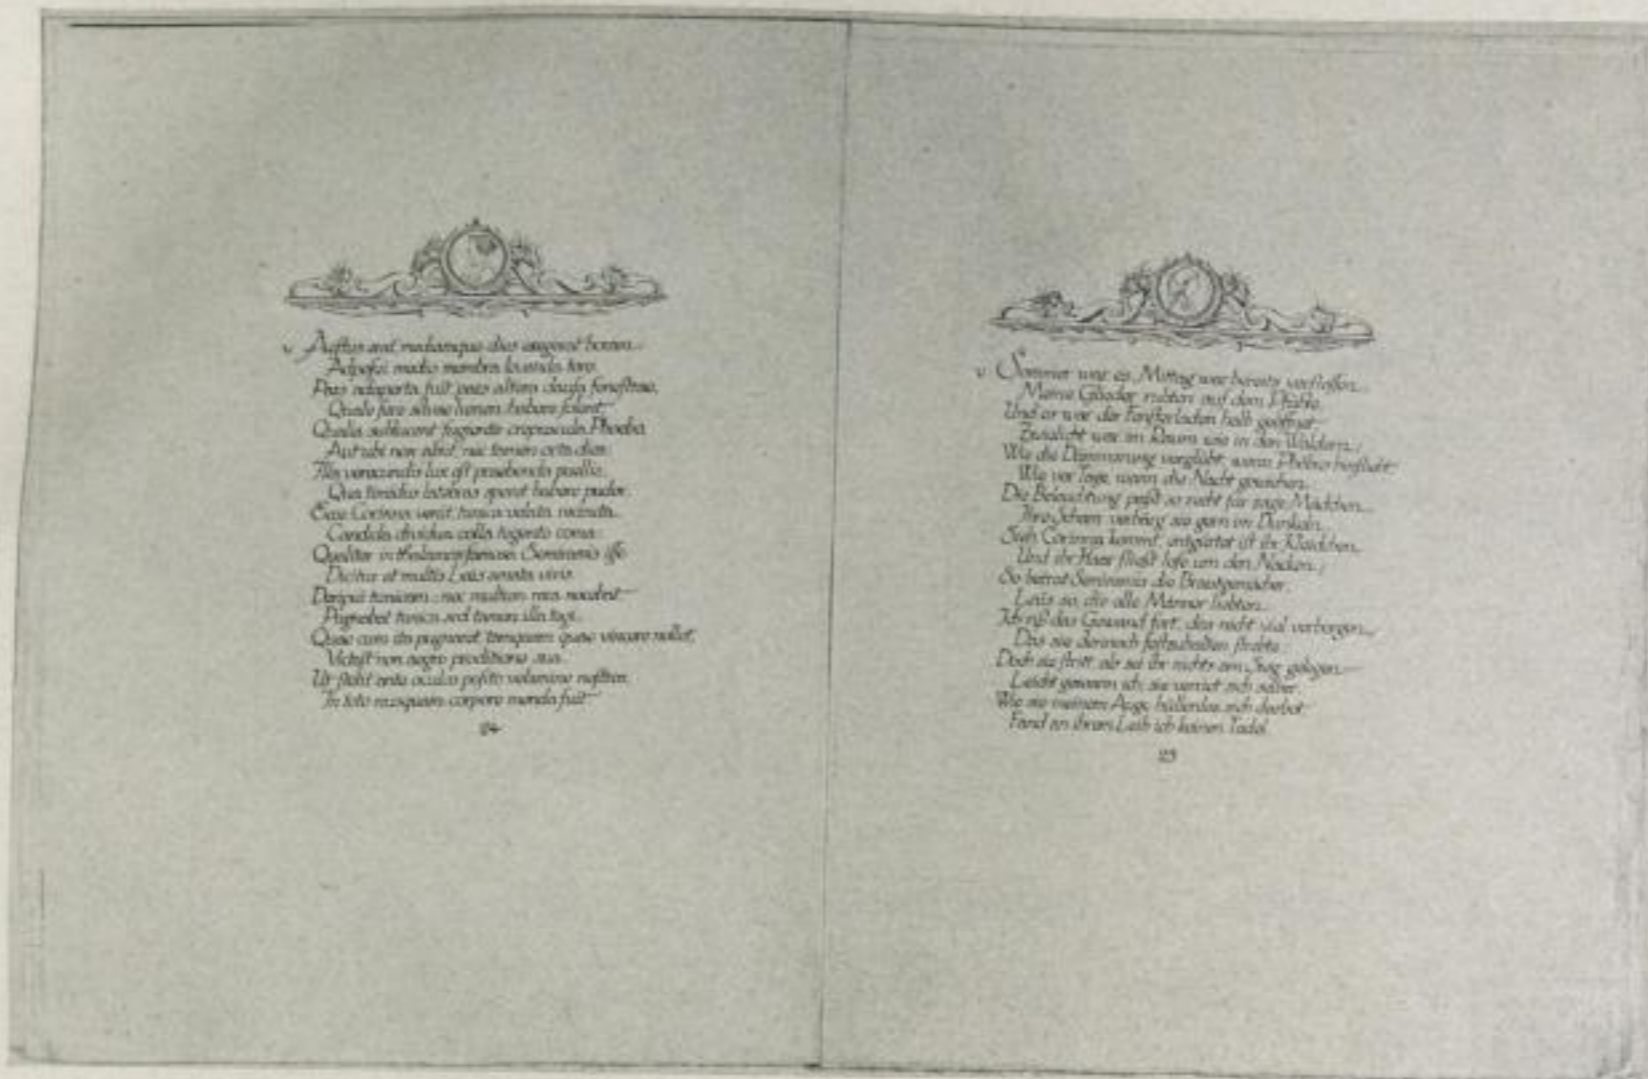 v Aestus erat mediamque dies exegerat horam
Adposui medio membra levanda toro.
Pars adaperta fuit pars altera clausa fenestrae,
Quale fere silvae lumen habere solent,
Qualia sublucent fugiente crepuscula Phoebo
Aut ubi nox abiit, nec tamen orta dies.
Illa verecundis lux est praebenda puellis,
Qua timidus latebras speret habere pudor.
Ecce Corinna venit, tunica velata recincta,
Candida dividua colla tegente coma:
Qualiter in thalamos famosa Semiramis isse
Dicitur et multis Lais amata viris.
Deripui tunicam: nec multum rara nocebat
Pugnabat tunica sed tamen illa tegi.
Quae cum ita pugnaret, tamquam quae vincere nollet,
Victast non aegre proditione sua.
Ut stetit ante oculos posito velamine nostros
In toto nusquam corpore menda fuit
24
v Sommer war es, Mittag war bereits verflossen,
Meine Glieder ruhten auf dem Pfühle.
Und er war der Fensterladen halb geöffnet.
Zwielicht war im Raum wie in den Wäldern,
Wie die Dämmerung verglüht, wenn Phöbus hinflieht
Wie vor Tage, wann die Nacht gewichen.
Die Beleuchtung paßt so recht für zage Mädchen,
Ihre Scham verbirg sie gern im Dunkeln.
Sieh, Corinna kommt, entgürtet ist ihr Kleidchen,
Und ihr Haar fließt lose um den Nacken;
So betrat Semiramis die Brautgemächer,
Lais so, die alle Männer liebten.
Ich riß das Gewand fort, das nicht viel verborgen,
Das sie dennoch festzuhalten strebte.
Doch sie stritt, als sei ihr nichts am Sieg gelegen
Leicht gewann ich, sie verriet sich selber.
Wie sie meinem Auge hüllenlos sich darbot
Fand an ihrem Leib ich keinen Tadel
25